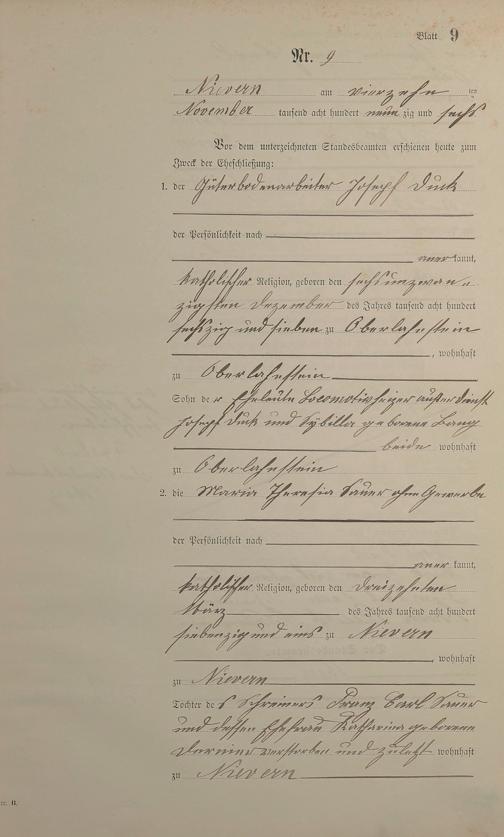 Blatt 9
Nr. 9
Nievern am vierzehn ten
November tausend acht hundert neun zig und sechs
Vor dem unterzeichneten Standesbeamten erschienen heute zum
Zweck der Eheschließung:
1. der Güterbodenarbeiter Joseph Duck
der Persönlichkeit nach
aner kannt,
katholischer Religion, geboren den sechsundzwan-
zigsten Dezember des Jahres tausend acht hundert
sechszig und sieben zu Oberlahnstein
, wohnhaft
zu Oberlahnstein
Sohn de r Eheleute Locomotivheizer außer Dienst
Joseph Duck und Sybilla geborene Bang
beide wohnhaft
zu Oberlahnstein
2. die Maria Theresia Sauer ohne Gewerbe
der Persönlichkeit nach
aner kannt,
katholischer Religion, geboren den dreizehnten
März des Jahres tausend acht hundert
siebenzig und eins zu Nievern
, wohnhaft
zu Nievern
Tochter de s Schreiners Franz Carl Sauer
und dessen Ehefrau Katharina geborene
verstorben und zuletzt wohnhaft
zu Nievern